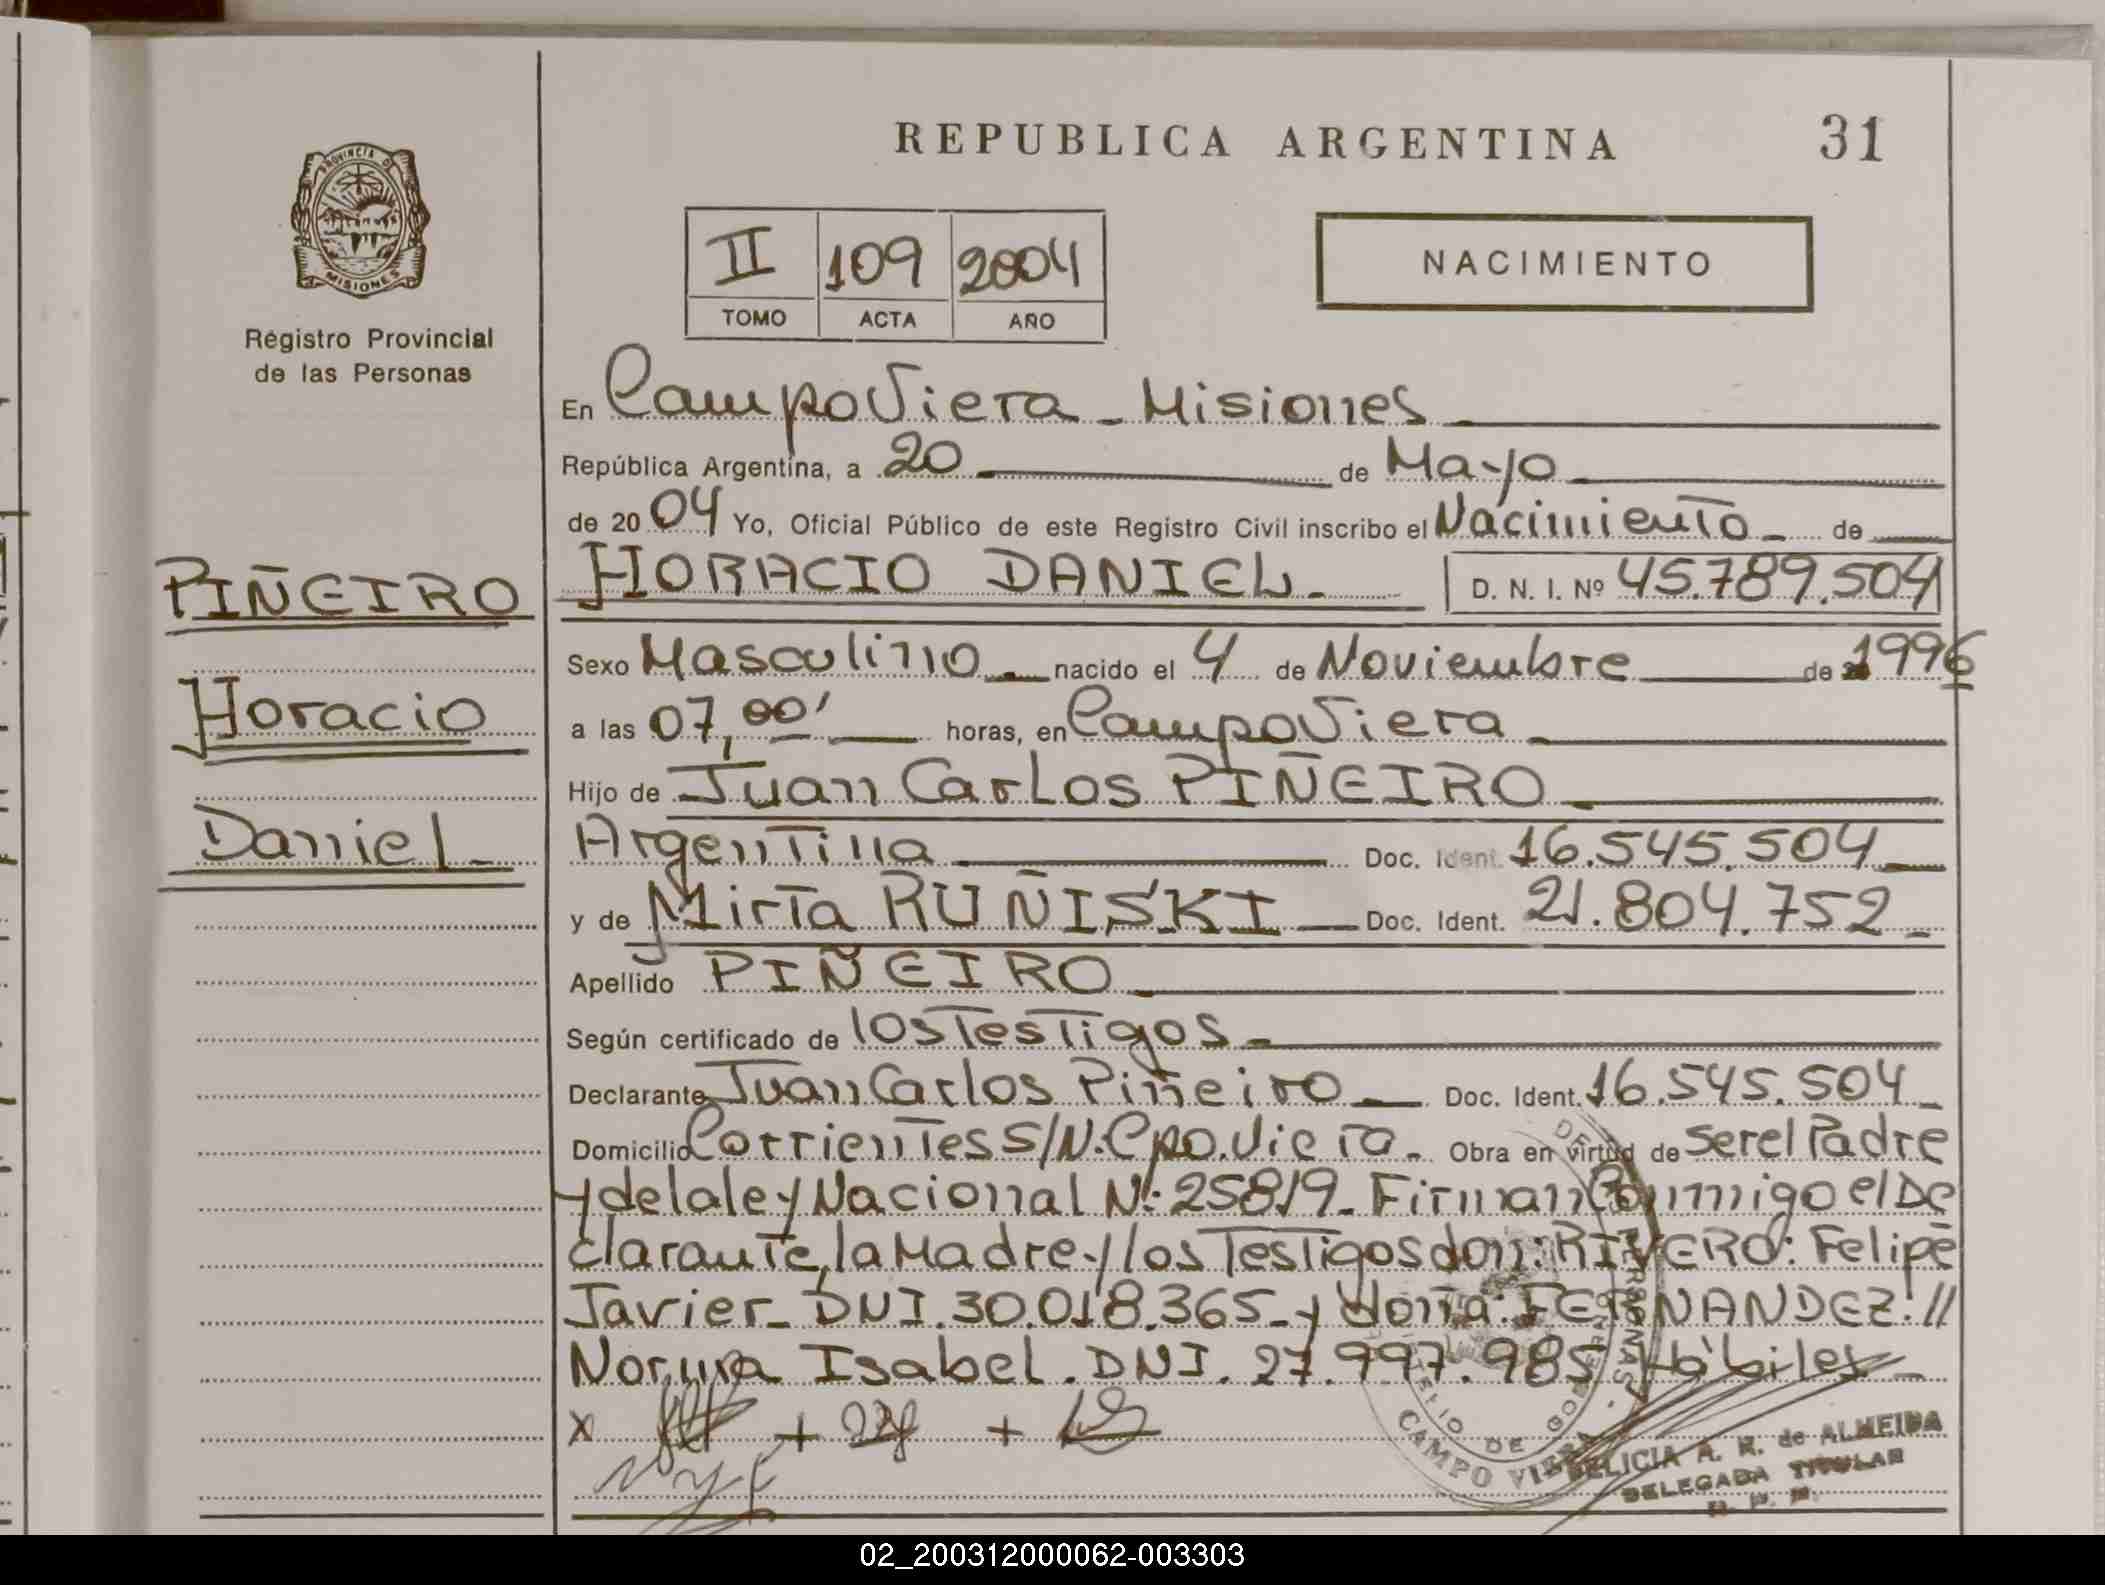 REPUBLICA ARGENTINA
31
PROVINCIA DE
MISIONES
Registro Provincial
de las Personas
II 109 2004
TOMO ACTA AÑO
NACIMIENTO
En Campo Viera - Misiones
República Argentina, a 20 de Mayo
de 2004 Yo, Oficial Público de este Registro Civil inscribo el Nacimiento de
PIÑEIRO
Horacio
Daniel
HORACIO DANIEL. D. N. I. Nº 45.789.504
Sexo Masculino nacido el 4 de Noviembre de 1996
a las 07,00' horas, en Campo Viera
Hijo de Juan Carlos PIÑEIRO
Argentina Doc. Ident. 16.545.504
y de Mirta RUÑISKI Doc. Ident. 21.804.752
Apellido PIÑEIRO
Según certificado de los Testigos
Declarante Juan Carlos Piñeiro Doc. Ident. 16.545.504
Domicilio Corrientes S/N. Cpo. Viera. Obra en virtud de ser el Padre
y de la ley Nacional N: 25819. Firman Conmigo el De
clarante, la Madre y los Testigos don: RIVERO: Felipe
Javier - DNI. 30.018.365 - y doña: FERNANDEZ: //
Norma Isabel. DNI. 27.997.985 Hábiles
x + +
CAMPO VIERA
DELICIA A. R. de ALMEIDA
DELEGADA TITULAR
R. P. P.
02_200312000062-003303